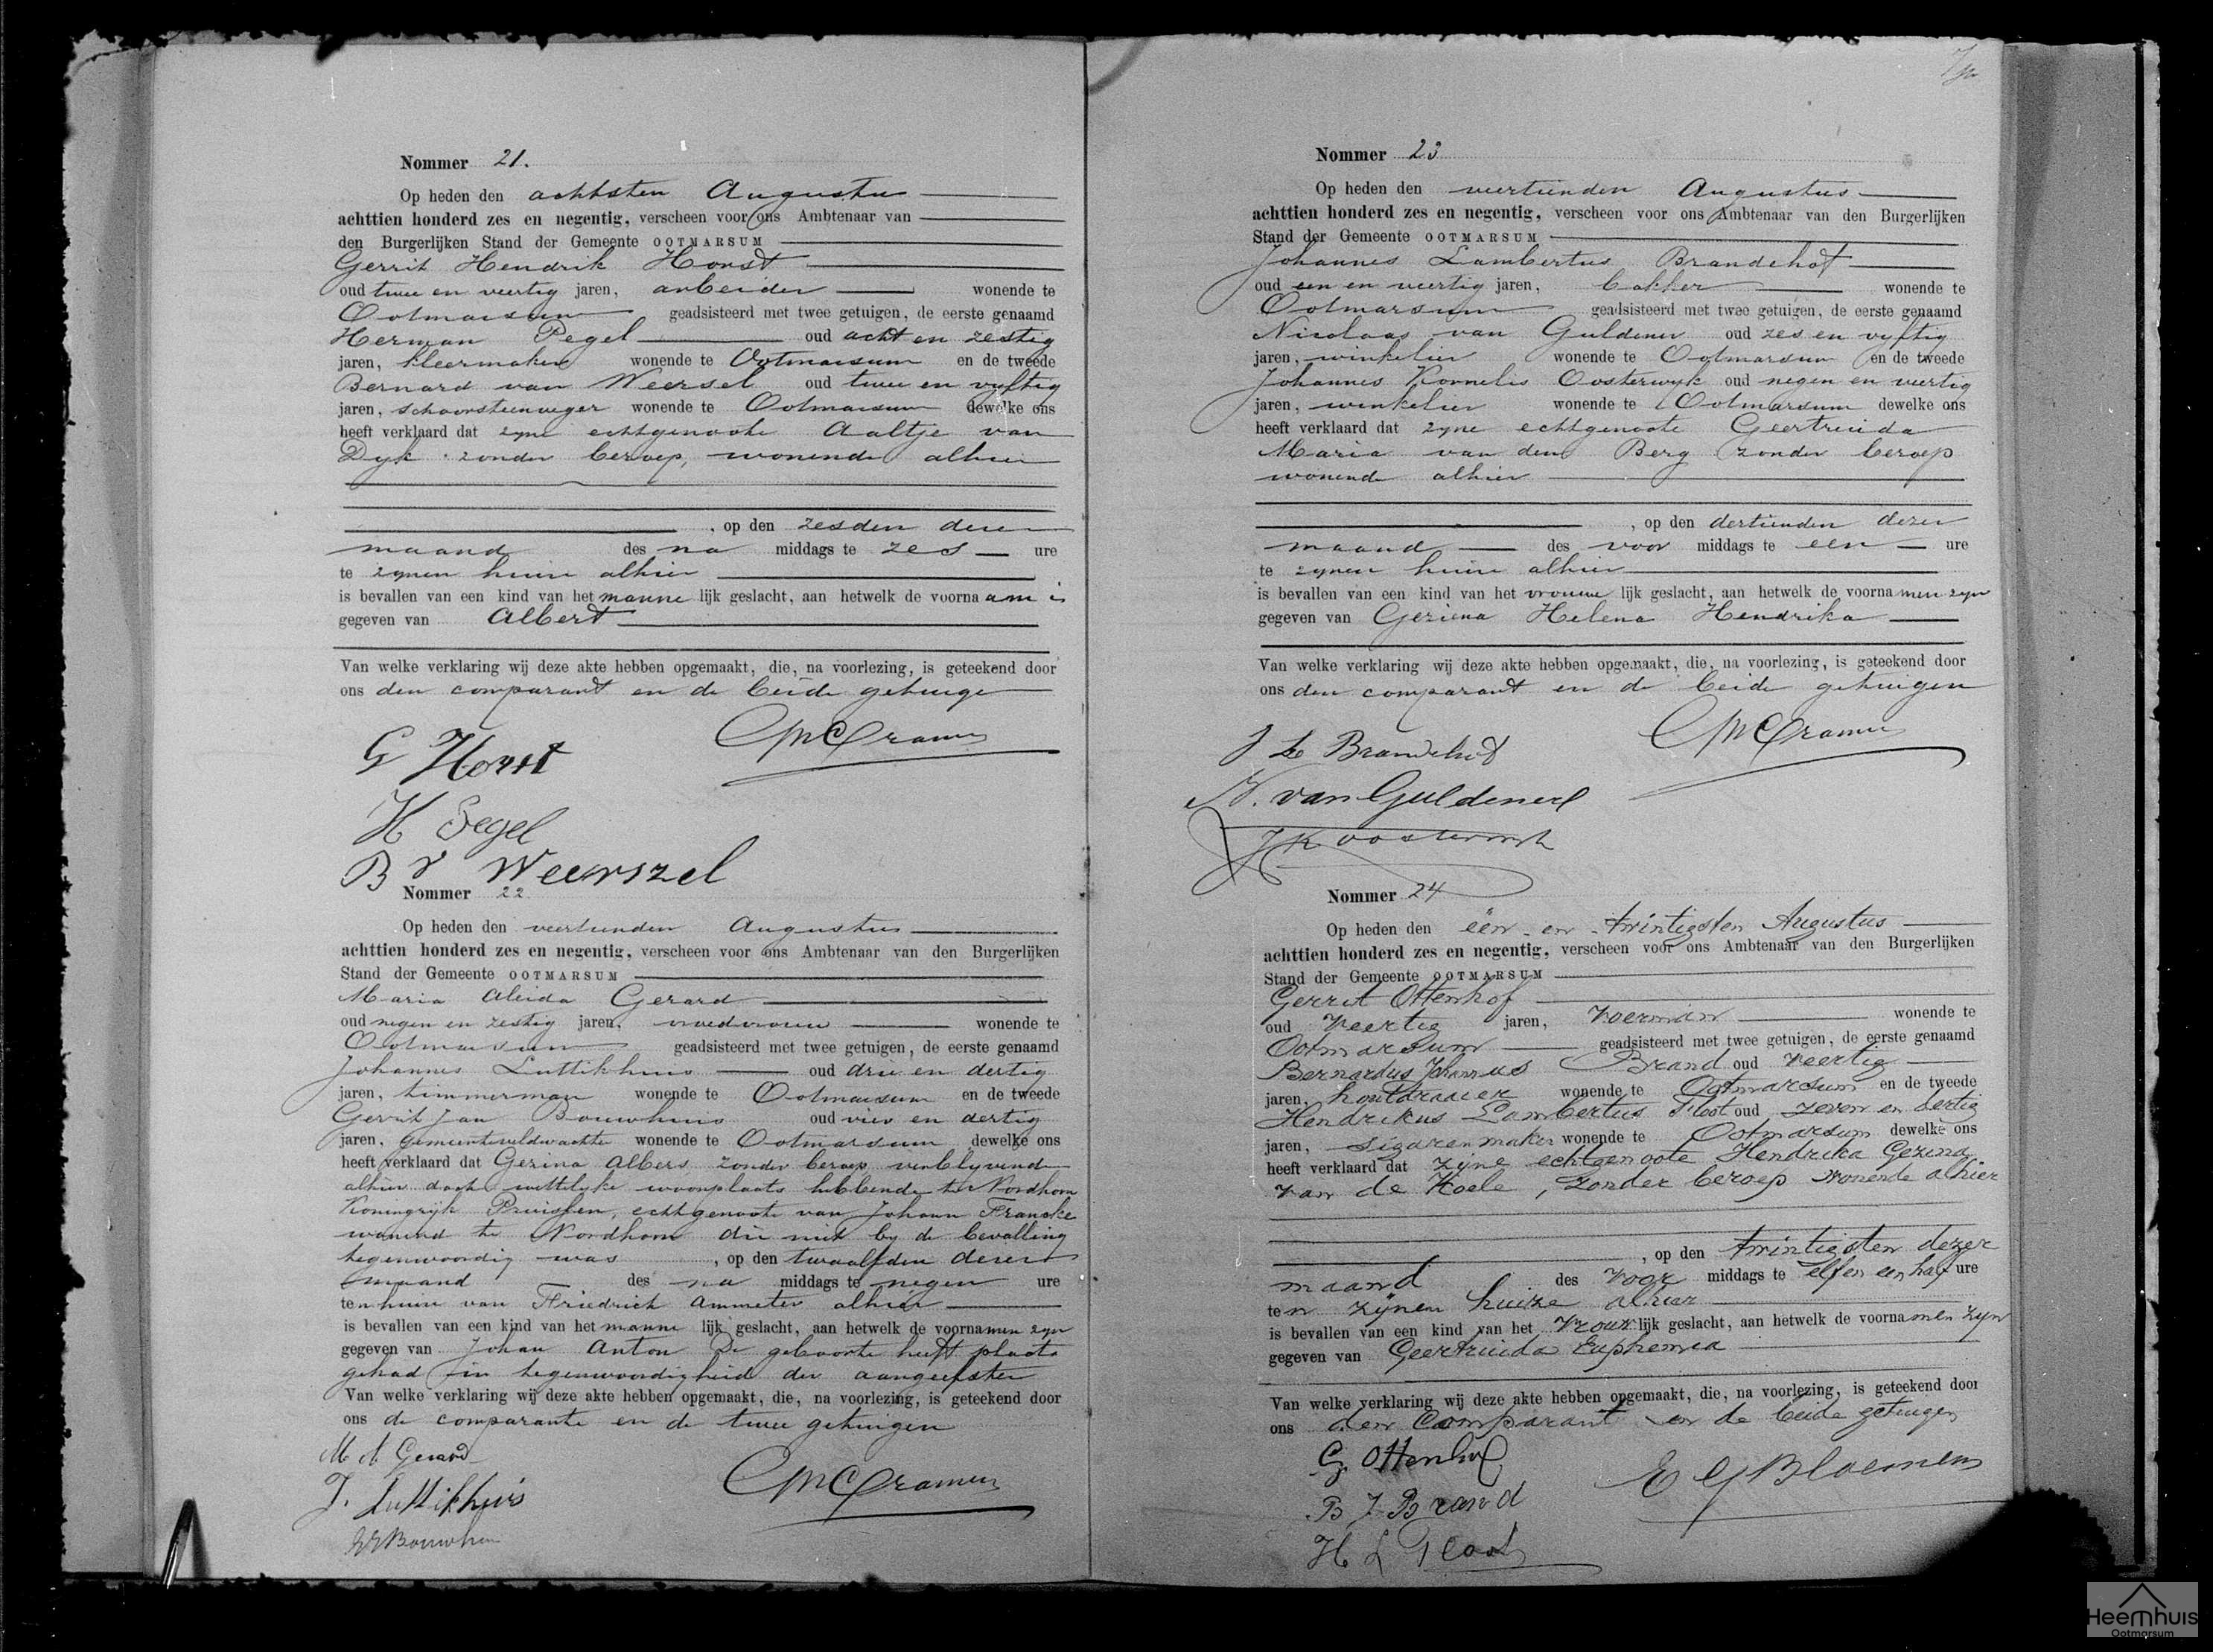 Nommer 21.
Op heden den achtsten Augustus
achttien honderd zes en negentig, verscheen voor ons Ambtenaar van
den Burgerlijken Stand der Gemeente OOTMARSUM
Gerrit Hendrik Horst
oud twee en veertig jaren, arbeider wonende te
Ootmarsum geadsisteerd met twee getuigen, de eerste genaamd
Herman Pegel oud acht en zestig
jaren, kleermaker wonende te Ootmarsum en de tweede
Bernard van Weersel oud twee en vyftig
jaren, schoorsteenveger wonende te Ootmarsum dewelke ons
heeft verklaard dat zyne echtgenoote Aaltje van
Dyk zonder beroep, wonende alhier
, op den zesden dezer
maand des na middags te zes ure
te zynen huize alhier
is bevallen van een kind van het manne lijk geslacht, aan hetwelk de voorna am is
gegeven van Albert
Van welke verklaring wij deze akte hebben opgemaakt, die, na voorlezing, is geteekend door
ons den comparant en de beide getuige
G Horst
CMCramer
H Pegel
B v Weerszel
Nommer 22
Op heden den veertienden Augustus
achttien honderd zes en negentig, verscheen voor ons Ambtenaar van den Burgerlijken
Stand der Gemeente OOTMARSUM
Maria Aleida Gerard
oud negen en zestig jaren, vroedvrouw wonende te
Ootmarsum geadsisteerd met twee getuigen, de eerste genaamd
Johannes Luttikhuis oud drie en dertig
jaren, timmerman wonende te Ootmarsum en de tweede
Gerrit Jan Bouwhuis oud vier en dertig
jaren, gemeenteveldwachter wonende te Ootmarsum dewelke ons
heeft verklaard dat Gerina Albers zonder beroep verblyvende
alhier doch wettelyke woonplaats hebbende te Nordhorn
Koningryk Pruissen, echtgenoote van Johann Francke
wonend te Nordhorn die niet by de bevalling
tegenwoordig was , op den twaalfden dezer
maand des na middags te negen ure
ten huize van Friedrich Ammeter alhier
is bevallen van een kind van het manne lijk geslacht, aan hetwelk de voornamen zyn
gegeven van Johan Anton De geboorte heeft plaats
gehad in tegenwoordigheid der aangeefster
Van welke verklaring wij deze akte hebben opgemaakt, die, na voorlezing, is geteekend door
ons de comparante en de twee getuigen
M A Gerard
J. Luttikhuis
CMCramer
GJBouwhuis
Nommer 23
Op heden den veertienden Augustus
achttien honderd zes en negentig, verscheen voor ons Ambtenaar van den Burgerlijken
Stand der Gemeente OOTMARSUM
Johannes Lambertus Brandehof
oud een en veertig jaren, bakker wonende te
Ootmarsum geadsisteerd met twee getuigen, de eerste genaamd
Nicolaas van Guldener oud zes en vyftig
jaren, winkelier wonende te Ootmarsum en de tweede
Johannes Kornelis Oosterwyk oud negen en veertig
jaren, winkelier wonende te Ootmarsum dewelke ons
heeft verklaard dat zyne echtgenoote Geertruida
Maria van den Berg zonder beroep
wonende alhier
, op den dertienden dezer
maand des voor middags te een ure
te zynen huize alhier
is bevallen van een kind van het vrouwe lijk geslacht, aan hetwelk de voorna men zyn
gegeven van Geziena Helena Hendrika
Van welke verklaring wij deze akte hebben opgemaakt, die, na voorlezing, is geteekend door
ons den comparant en de beide getuigen
CMCramer
J L Brandehof
N. van Guldeneel
J K Oosterwijk
Nommer 24
Op heden den één en twintigsten Augustus
achttien honderd zes en negentig, verscheen voor ons Ambtenaar van den Burgerlijken
Stand der Gemeente OOTMARSUM
Gerrit Ottenhof
oud veertig jaren, voerman wonende te
Ootmarsum geadsisteerd met twee getuigen, de eerste genaamd
Bernardus Johannes Brand oud veertig
jaren, houtdraaier wonende te Ootmarsum en de tweede
Hendrikus Lambertus Sloot oud zeven en dertig
jaren, sigarenmaker wonende te Ootmarsum dewelke ons
heeft verklaard dat zijne echtgenoote Hendrika Gezina
van de Koele, zonder beroep wonende alhier
, op den twintigsten dezer
maand des voor middags te elf en een half ure
te n zijnen huize alhier
is bevallen van een kind van het vrouw lijk geslacht, aan hetwelk de voorna men zyn
gegeven van Geertruida Euphemia
Van welke verklaring wij deze akte hebben opgemaakt, die, na voorlezing, is geteekend door
ons den comparant en de beide getuigen
G. Ottenhof
E G Bloemen
B J Brand
H L Sloot
Heemhuis
Ootmarsum